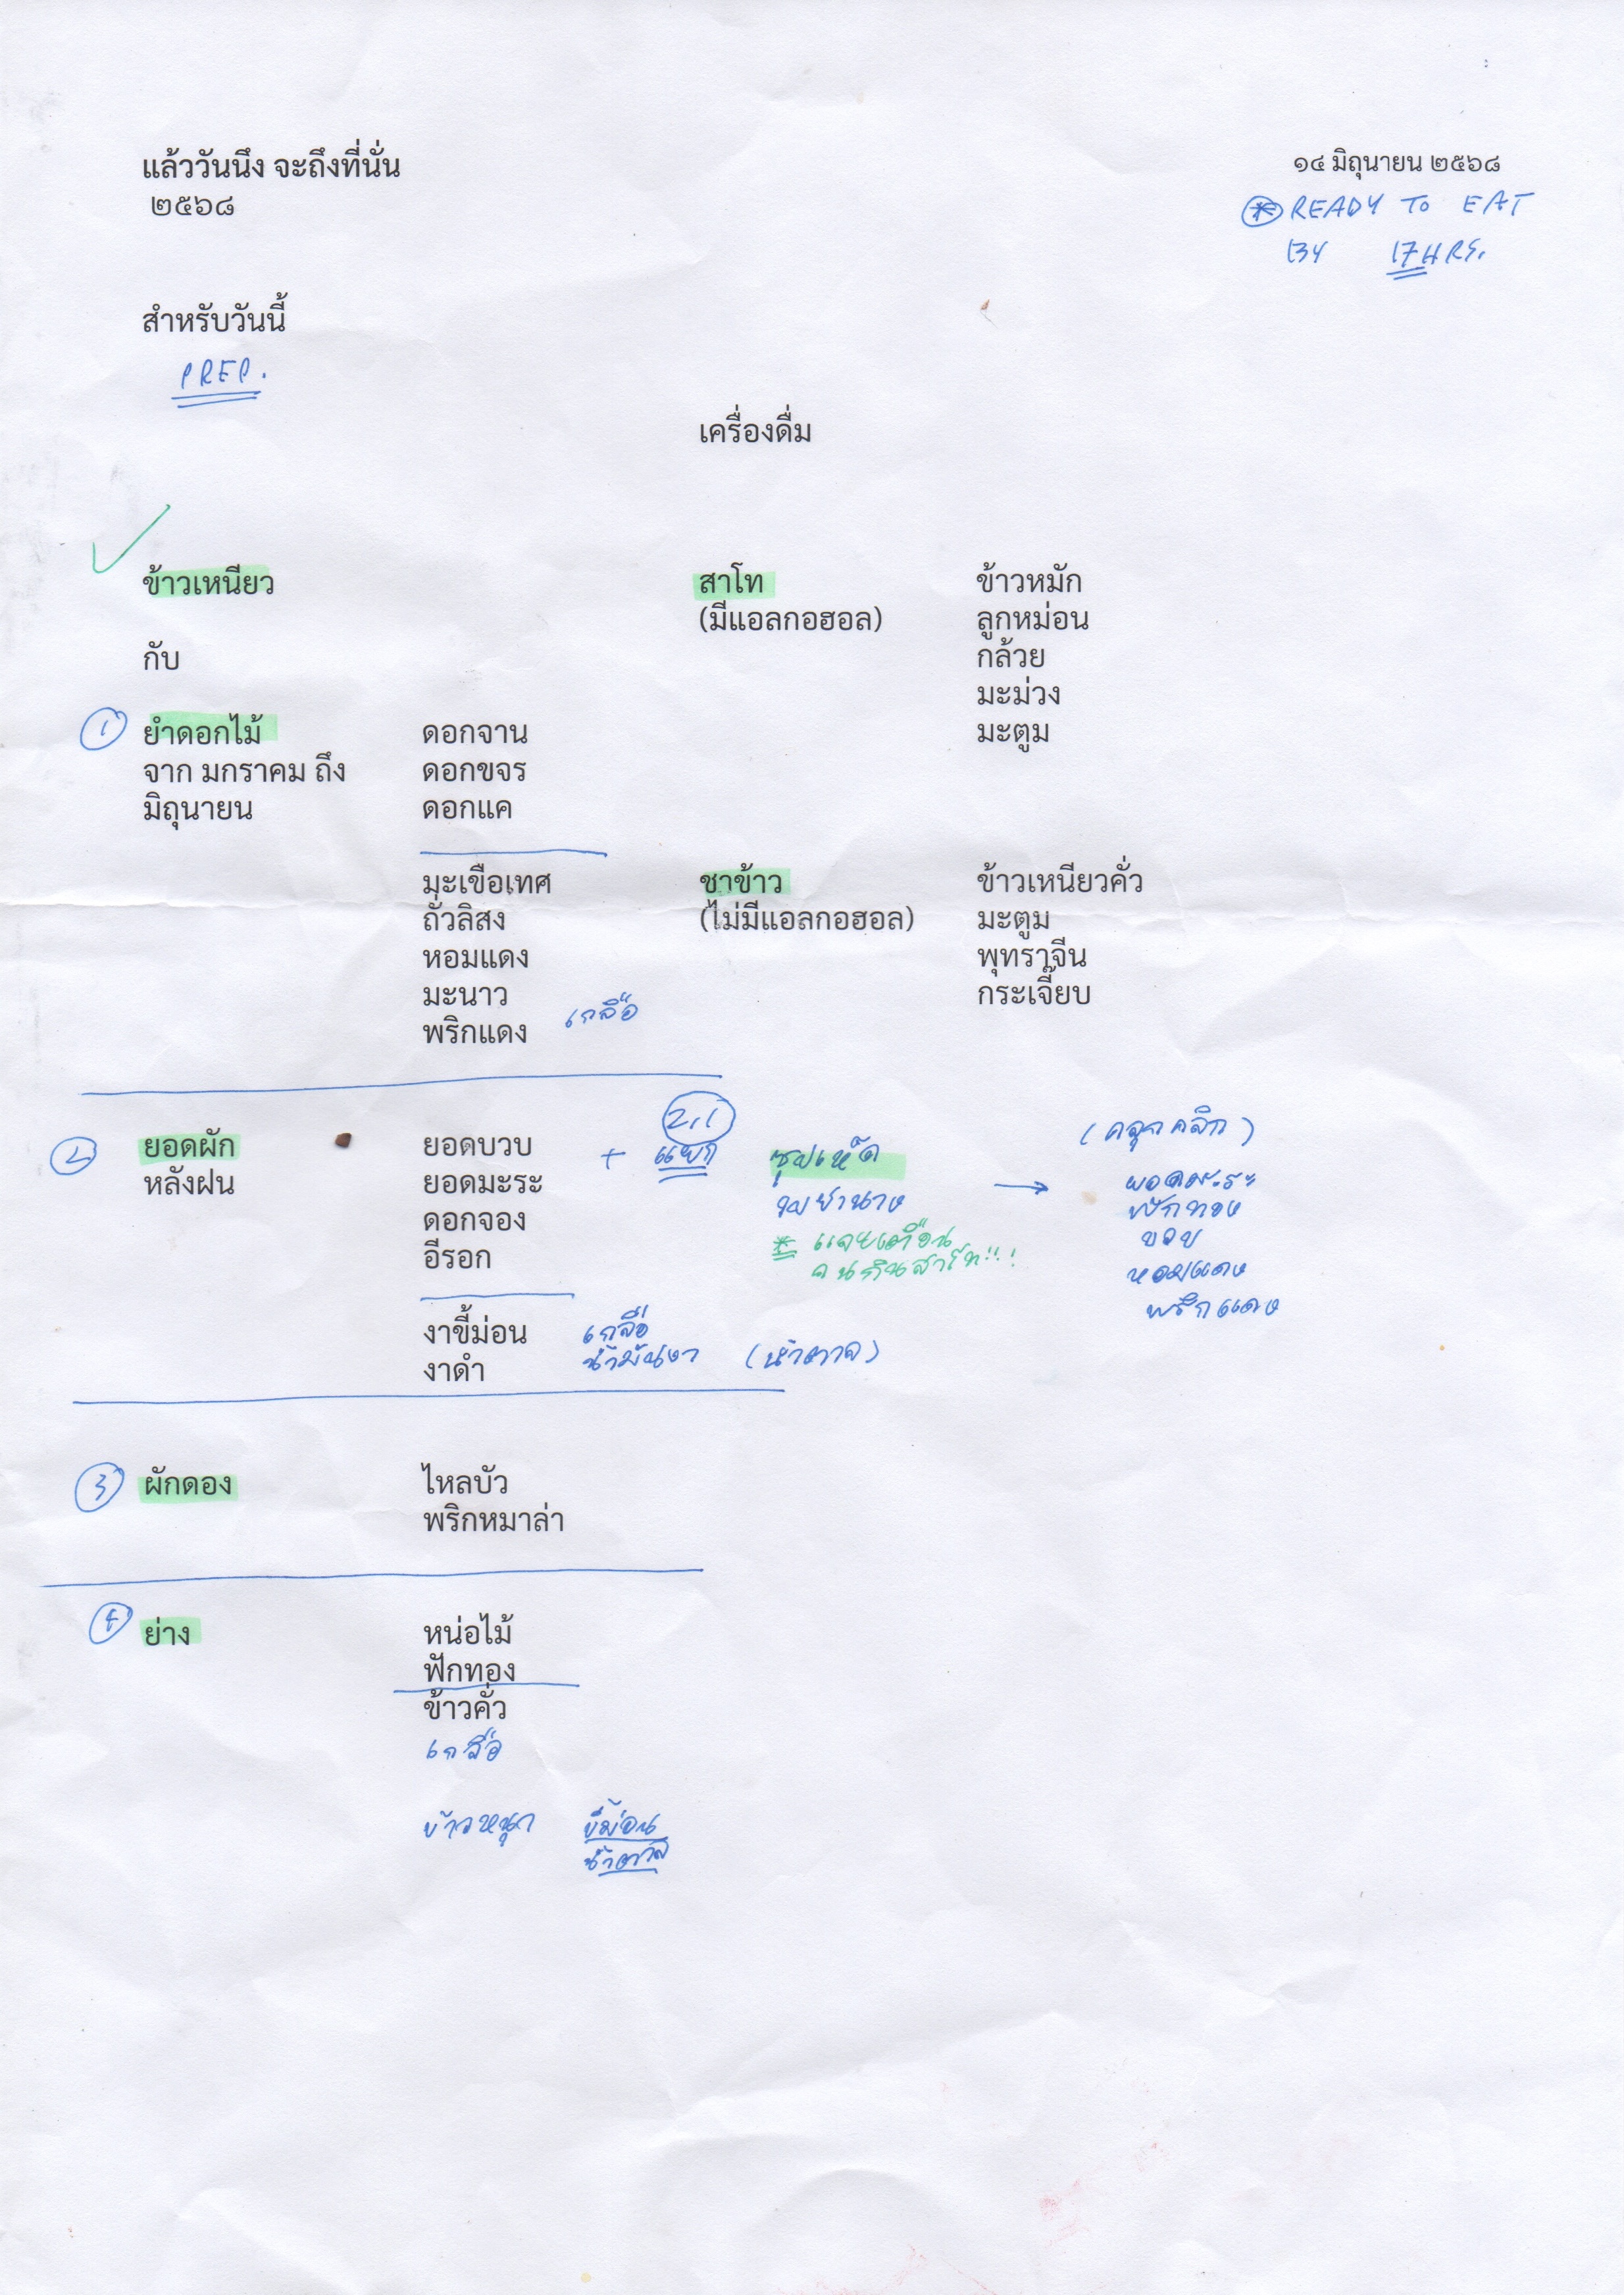 แล้ววันนึง จะถึงที่นั่น
๒๕๖๘
๑๔ มิถุนายน ๒๕๖๘
READY TO EAT
BY 17HRS.
สำหรับวันนี้
PREP.
เครื่องดื่ม
ข้าวเหนียว
กับ
1
ยำดอกไม้
จาก มกราคม ถึง
มิถุนายน
ดอกจาน
ดอกขจร
ดอกแค
มะเขือเทศ
ถั่วลิสง
หอมแดง
มะนาว
พริกแดง เกลือ
สาโท
(มีแอลกอฮอล)
ข้าวหมัก
ลูกหม่อน
กล้วย
มะม่วง
มะตูม
ชาข้าว
(ไม่มีแอลกอฮอล)
ข้าวเหนียวคั่ว
มะตูม
พุทราจีน
กระเจี๊ยบ
2
ยอดผัก
หลังฝน
ยอดบวบ
ยอดมะระ
ดอกจอง
อีรอก
งาขี้ม่อน เกลือ
งาดำ น้ำมันงา (น้ำตาล)
2.1
+ แยก
ซุปเห็ด
ใบย่านาง
คนกินสาโท!!!
(คลุกคลิก)
ยอดมะระ
ฟักทอง
บวบ
หอมแดง
พริกแดง
3
ผักดอง
ไหลบัว
พริกหมาล่า
4
ย่าง
หน่อไม้
ฟักทอง
ข้าวคั่ว
เกลือ
ข้าวหนุก ขี้ม่อน
น้ำตาล